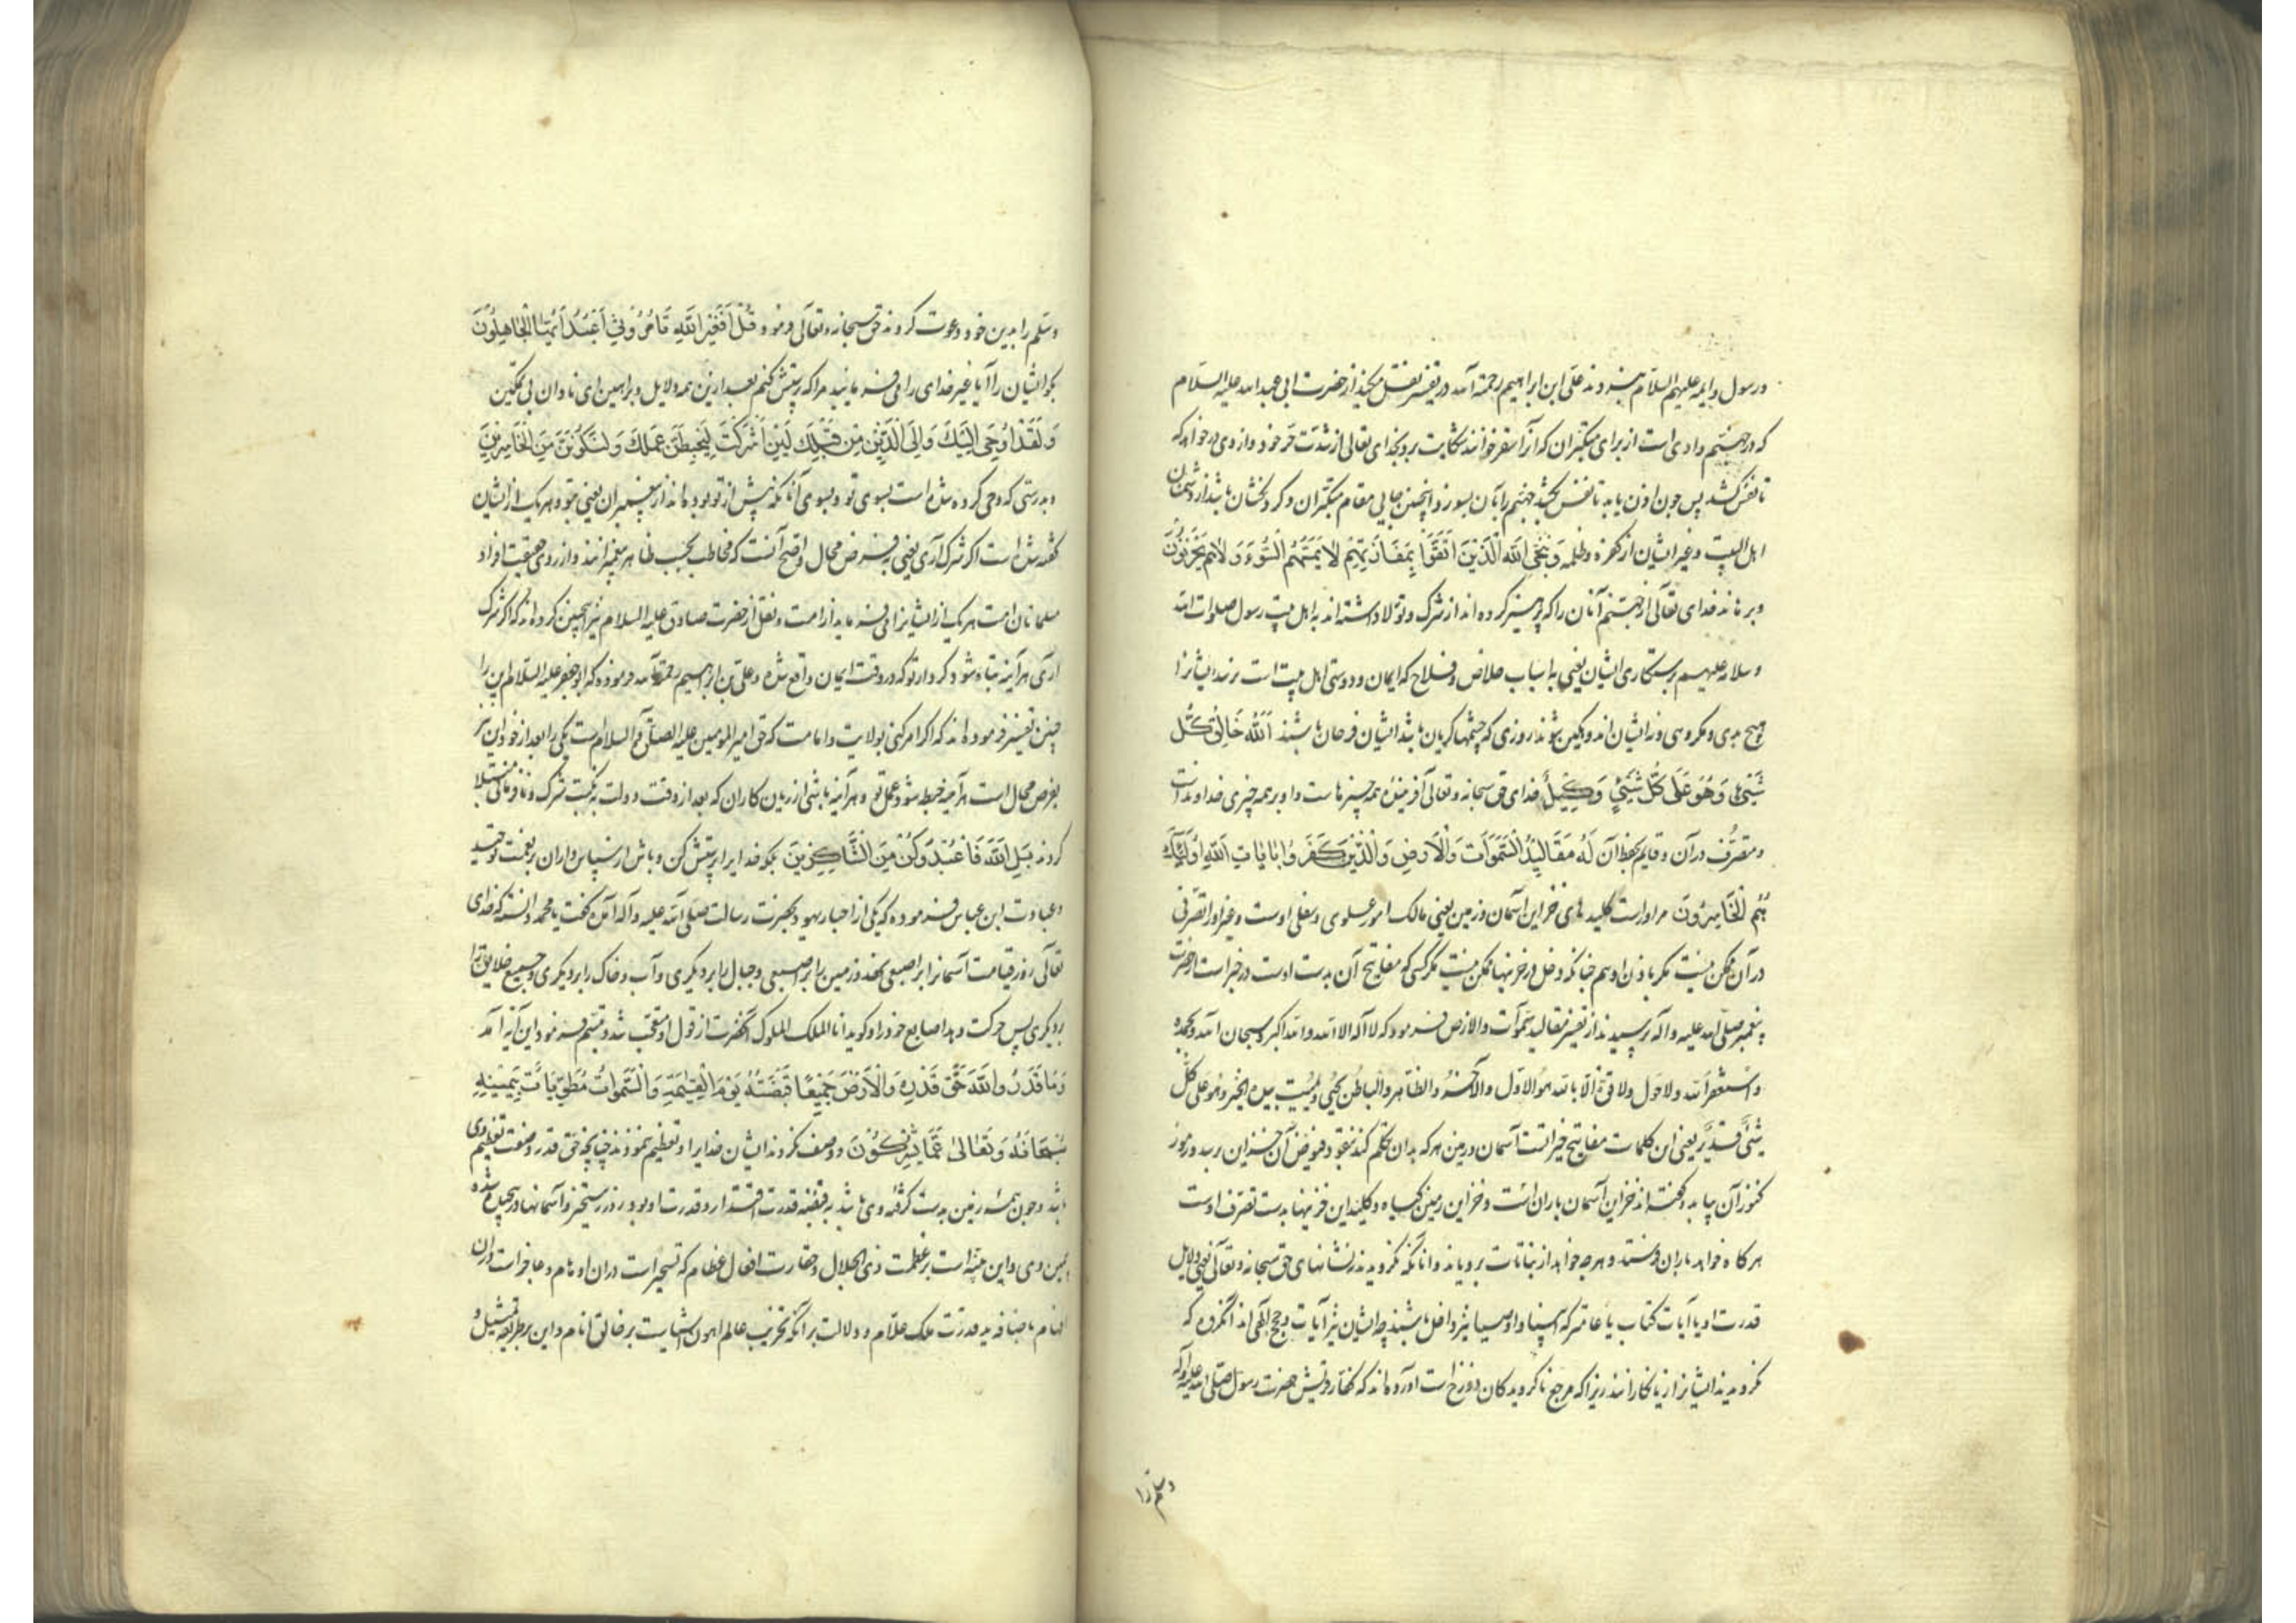 ورسول وایمه علیهم السلام علی ابن ابراهیم رحمة الله در تفسیر نقل میکند از حضرت ابی عبد الله علیه السلام
که در جهنم وادی است از برای متکبران که آنرا سقر خوانند شکایت برد بخدای تعالی از شدت حر خود و از وی درخواهد که
تا نفس کشد پس چون اذن یابد تا نفس کشد جهنم را بآن بسوزد و اینچنین جایی مقام متکبران و گردنکشان باشد از دشمنان
اهل البیت و غیر ایشان از کفره و ظلمه وَيُنَجِّي اللّٰه الَّذينَ اتَّقَوْا بِمَفَازَتِهِمْ لَا يَمَسُّهُمُ السُّوءُ وَلَا هُمْ يَحْزَنُونَ
و برهاند خدای تعالی از جهنم آنان را که پرهیز کرده اند از شرک و تولا داشته اند به اهل بیت رسول صلوات الله
وسلامه علیهم برستکاری ایشان یعنی به اسباب خلاص و فلاح که ایمان و دوستی اهل بیت است نرسد ایشانرا
هیچ بدی و مکروهی و نه ایشان اندوهکین شوند روزی که چشمها گریان باشد ایشان فرحان باشند اَللّٰهُ خَالِقُ كُلِّ
شَيْءٍ وَهُوَ عَلَى كُلِّ شَيْءٍ وَكِيلٌ خدای حق سبحانه و تعالی آفریننده همه چیزهاست و او بر همه چیزی خداوند است
و متصرف در آن و قایم بحفظ آن لَهُ مَقَالِيدُ السَّمَوَاتِ وَالْاَرْضِ وَالَّذِينَ كَفَرُوا بِاٰيَاتِ اللّٰهِ اُولٰئِكَ
هُمُ الْخَاسِرُونَ مر او راست کلیدهای خزاین آسمان و زمین یعنی مالک امور علوی و سفلی اوست و غیر او را تصرفی
در آن ممکن نیست مکر باذن او همچنانکه دخل در خزینها ممکن نیست مکر کسی که مفاتیح آن بدست اوست در خبر است از حضرت
پیغمبر صلی الله علیه و آله پرسیدند از تفسیر مقالید سموات والارض فرمود که لا اله الا الله والله اکبر وسبحان الله وبحمده
واستغفر الله ولا حول ولا قوة الا بالله هو الاول والآخر والظاهر والباطن یحیی ویمیت بیده الخیر وهو علی کل
شیء قدیر یعنی این کلمات مفاتیح خیراتست آسمان و زمین هر که بدان تکلم کند بنقود فیوض آن خزاین رسد و رموز
کنوز آن بیابد و گفته اند خزاین آسمان باران است و خزاین زمین گیاه و کلید این خزینها بدست تصرف اوست
هر کاه خواهد باران فرستد و هر چه خواهد از نباتات برویاند و آنانکه نکرویدند بنشانهای حق سبحانه و تعالی یعنی دلایل
قدرت او یا آیات کتاب یا عامتر که انبیا و اوصیا نیز داخل باشند چه ایشان نیز آیات و حجج الهی اند آنکروه که
نکرویدند ایشانند از زیانکارانند زیرا که مرجع ناکرویدکان دوزخ است آورده اند که کفار قریش حضرت رسول صلی الله علیه وآله
وسلم را
وسلم را بدین خود دعوت کردند حق سبحانه و تعالی فرمود قُلْ اَفَغَيْرَ اللّٰهِ تَأْمُرُونِّي اَعْبُدُ اَيُّهَا الْجَاهِلُونَ
بکو ایشان را آیا غیر خدای را می فرمایید مرا که پرستش کنم بعد از این همه دلایل و براهین ای نادان بی تمکین
وَلَقَدْ اُوحِيَ اِلَيْكَ وَاِلَى الَّذِينَ مِنْ قَبْلِكَ لَئِنْ اَشْرَكْتَ لَيَحْبَطَنَّ عَمَلُكَ وَلَتَكُونَنَّ مِنَ الْخَاسِرِينَ
و بدرستی که وحی کرده شده است بسوی تو و بسوی آنانکه پیش از تو بوده اند از پیغمبران یعنی بتو و هر یک از ایشان
گفته شده است اکر شرک آری یعنی به فرض محال و اصح آنست که مخاطب بحسب ظاهر پیغمبرانند و از روی حقیقت افراد
مسلمانان امت هر یک از ایشانرا می فرماید از امت و نقل از حضرت صادق علیه السلام نیز اینچنین کرده اند که اکر شرک
آری هر آینه تباه شود کردار تو که در وقت ایمان واقع شده و علی بن ابراهیم رحمة الله فرموده که ابو جعفر علیه السلام این را
چنین تفسیر فرموده اند که اکر امر کنی بولایت و امامت که حق امیر المومنین علیه الصلوة و السلام است یکی را بعد از خود این نیز
بفرض محال است هر آینه حبط شود عمل تو و هر آینه باشی از زیان کاران که بعد از وقت دولت به نکبت شرک و نافرمانی مبتلا
کردند بَلِ اللّٰهَ فَاعْبُدْ وَكُنْ مِنَ الشَّاكِرِينَ بلکه خدایرا پرستش کن و باش از سپاس داران بر نعمت توحید
و عبادت ابن عباس فرموده که یکی از احبار یهود بحضرت رسالت صلی الله علیه وآله آمد گفت یا محمد دانسته که خدای
تعالی روز قیامت آسمانرا بر اصبعی نهد و زمین را بر اصبعی و جبال را بر دیکری و آب و خاک را بر دیکری و جمیع خلایق را
بر دیکری پس حرکت دهد اصابع خود را و کوید انا الملک الملوک آنحضرت از قول او متعجب شد و تبسم فرمود این آیه آمد
وَمَا قَدَرُوا اللّٰهَ حَقَّ قَدْرِهِ وَالْاَرْضُ جَمِيعًا قَبْضَتُهُ يَوْمَ الْقِيٰمَةِ وَالسَّمٰوَاتُ مَطْوِيَّاتٌ بِيَمِينِهِ
سُبْحَانَهُ وَتَعَالٰى عَمَّا يُشْرِكُونَ و وصف نکردند ایشان خدایرا و تعظیم ننمودند چنانچه حق قدر و صفت تعظیم وی
باشد و چون همه زمین بدست گرفته وی باشد به قبضه قدرت اقتدار و قدرت او بود روز رستخیز و آسمانها در پیچیده شده
بیمین وی و این تنبیه است بر عظمت ذی الجلال و حقارت افعال عظام که تسخیر است در آن اوهام و عاجز است در آن
افهام باضافه به قدرت ملک علام و دلالت بر آنکه تخریب عالم اهون اشیاست بر خالق انام و این بر طریقه تمثیل و